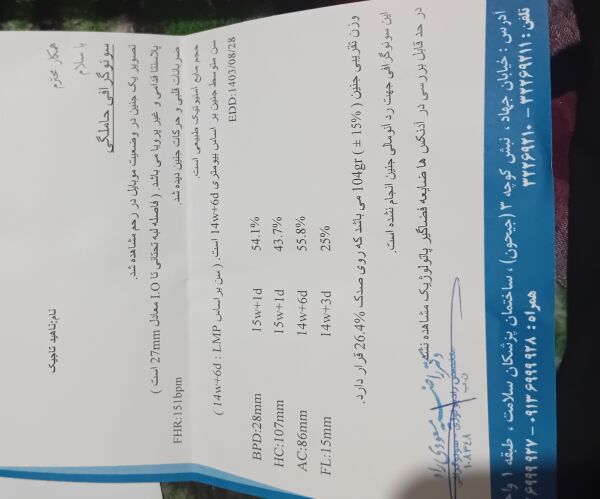 نام:ناهید تاجیک
همکار محترم
با سلام
سونوگرافی حاملگی
تصویر یک جنین در وضعیت موبایل در رحم مشاهده شد.
پلاسنتا قدامی و غیر پرویا می باشد. ( فاصله لبه تحتانی تا I.O معادل 27mm است )
ضربانات قلبی و حرکات جنین دیده شد.
FHR:151bpm
حجم مایع آمنیوتیک طبیعی است.
سن متوسط جنین بر اساس بیومتری 14w+6d است. ( سن بر اساس LMP : 14w+6d )
EDD:1403/08/28
BPD:28mm 15w+1d 54.1%
HC:107mm 15w+1d 43.7%
AC:86mm 14w+6d 55.8%
FL:15mm 14w+3d 25%
وزن تقریبی جنین ( ± 15% ) 104gr می باشد که روی صدک 26.4% قرار دارد.
این سونوگرافی جهت رد آنومالی جنین انجام نشده است.
در حد قابل بررسی در آدنکس ها ضایعه فضاگیر پاتولوژیک مشاهده نشد.
مسعودی راد
۱۰۸۳۴۸
آدرس : خیابان جهاد ، نبش کوچه ۳ (جیحون) ، ساختمان پزشکان سلامت ، طبقه ۱ وا
تلفن : ۳۲۲۶۹۲۱۱ - ۳۲۲۶۹۲۱۰ همراه : ۰۹۱۳۶۹۹۹۹۲۸ - ۶۹۹۹۹۲۷